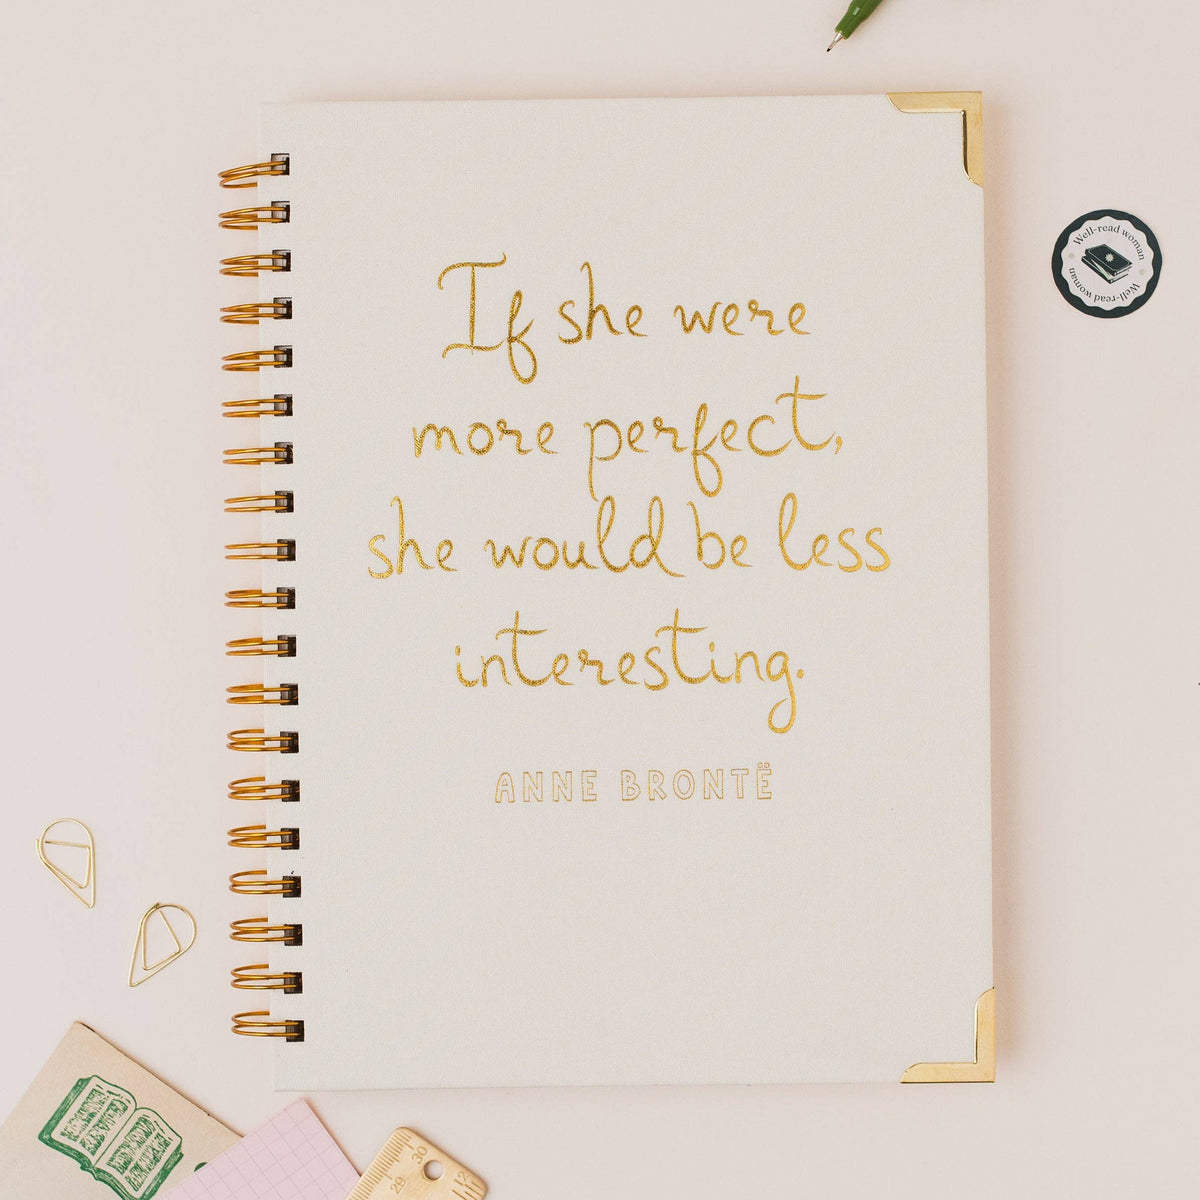 If she were
more perfect,
she would be less
interesting.
ANNE BRONTË
Well-read woman
Well-read woman
29
30
12